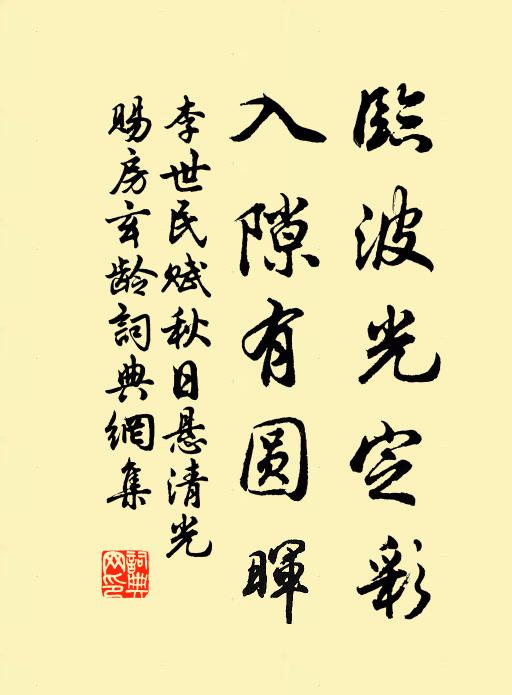 臨波光定彩
入隙有圆暉
李世民赋秋日悬清光
赐房玄龄詞典網集
詞典
网印